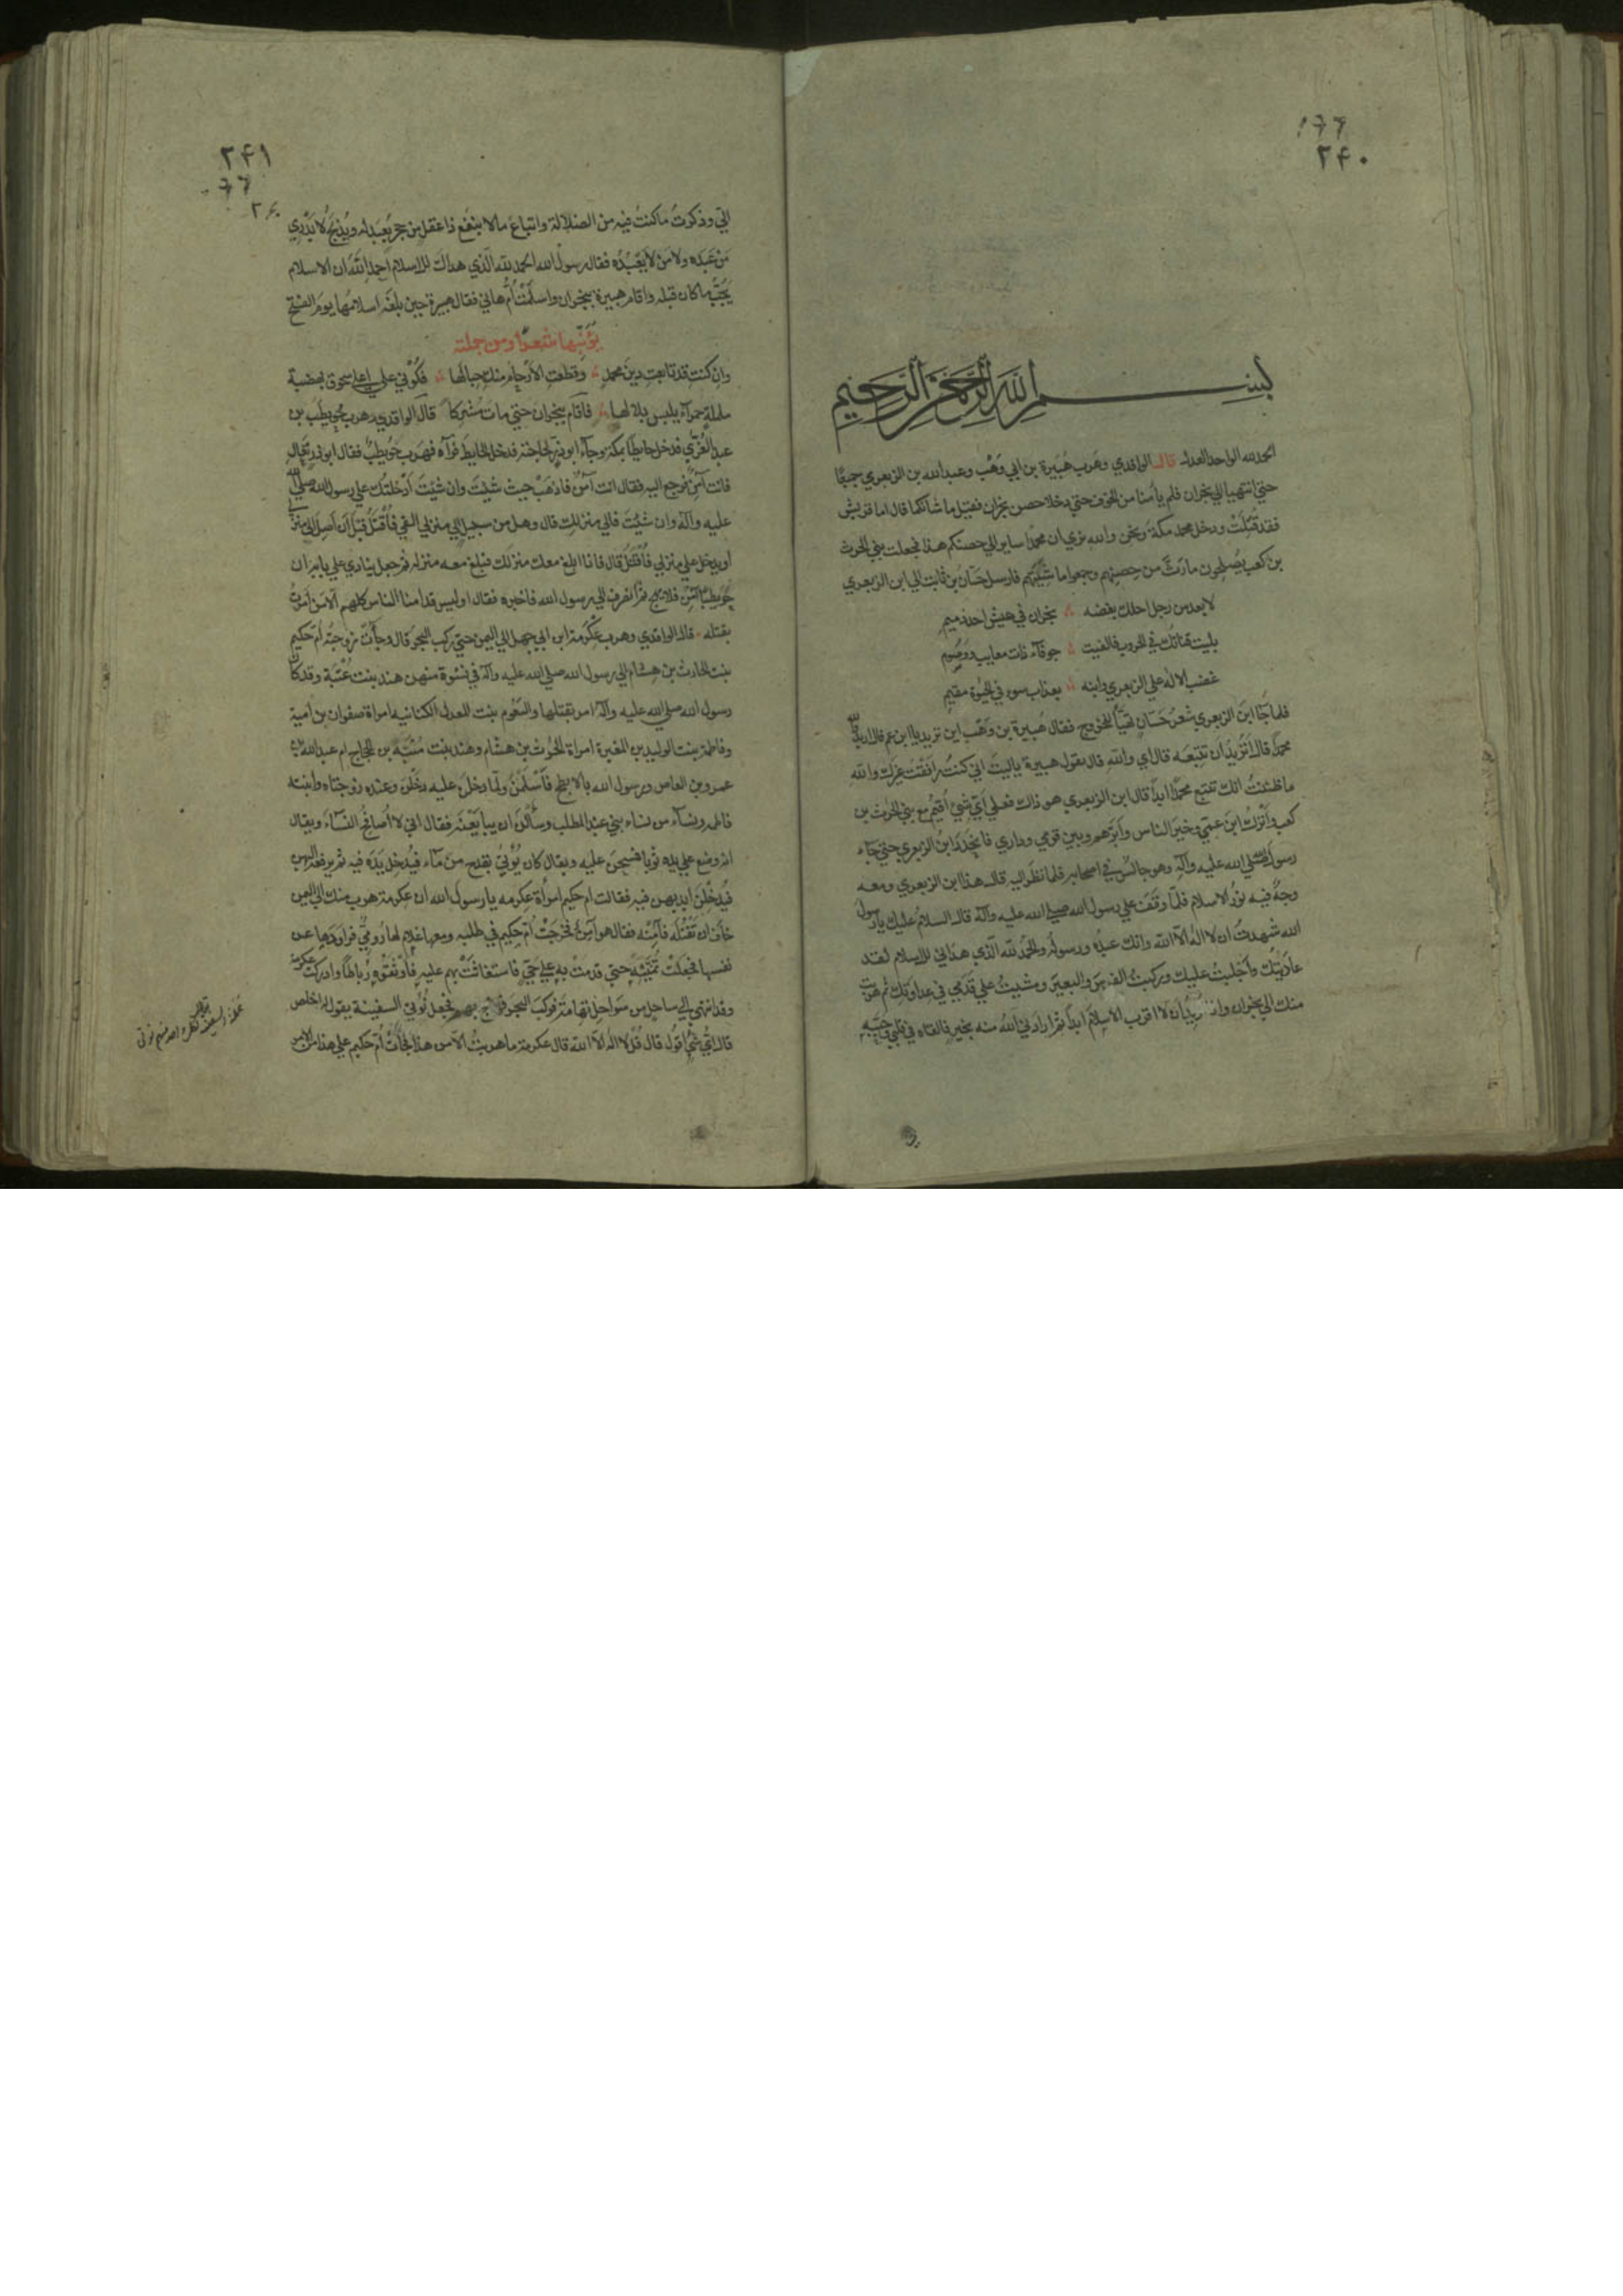 ٢۴٠
بسم الله الرحمن الرحيم
الحمد لله الواحد العدل قال الواقدي وهرب هُبَيرة بن ابي وَهْب وعبد الله بن الزبعري جميعًا
حتي انتهيا الي نجران فلم يأمنا من الخوف حتي دخلا حصن نجران فقيل ما شانكما قال اما قريش
فقد قُتِلَتْ ودخل محمد مكة ونحن والله نري ان محمدًا ساير الي حصنكم هذا فجعلت بني الحرث
بن كعب يُصلحون مارَثَّ من حصنهم وجمعوا ماشيتهم فارسل حَسّان بن ثابت الي ابن الزبعري
لا تعد من رجل احلك بغضه ؞ نجران في عيش احذ ذميم
بليت قناتك في الحروب فالفيت ؞ جوفآء ذات معايب ووصُوم
غضب الاله علي الزبعري وابنه ؞ بعذاب سوء في الحيوة مقيم
فلما جَا ابنَ الزبعري شعرُ حَسّان تهيَّأ للخروج فقال هُبيرة بن وَهْب اين تريد يا ابن عم قال اريد والله
محمدًا قال اَتُرِيدَ ان تتبعَه قال اي والله قال يقول هبيرة ياليتَ اني كنتُ رافَقْتُ غيرك والله
ما ظننتُ انك تتبع محمدًا ابدًا قال ابن الزبعري هو ذاك فعلي اَيّ شيئ اُقيمُ مع بني الحرث بن
كعب واَتْرُكُ ابنَ عمّي وخيرَ الناس واَبَرَّهم وبين قومي وداري فانحَدَرَ ابنُ الزبعري حتي جآء
رسولَ الله صلي الله عليه وآله وهو جالسٌ في اصحابه فلما نظر اليه قال هذا ابن الزبعري ومعه
وجهٌ فيه نورُ الاسلام فلمّا وقَفَ علي رسول الله صلي الله عليه وآله قال السلامُ عليك يا رسولَ
الله شهدتُ ان لا اله الّا الله وانك عبدُه ورسولُه والحمدُ لله الّذي هدَاني للاسلام لقد
عادَيتُك واَجْلبتُ عليك وركبتُ الفرسَ والبعيرَ ومشيتُ علي قَدَمي في عداوتك ثم هربت
منك الي نجران وانا اُرِيدُ اَن لا اقرب الاسلامَ ابدًا ثم ارادني اللهُ منه بخيرٍ فالقاه في قلبي وحَبَّبَه
٢۴١
٢۶٠
اليّ وذكرتُ ما كنتُ فيه من الضلالة واتباعَ مالا ينفَع ذا عقل من حجرٍ يُعبَد له ويُذبَحُ لا يَدْرِي
مَن عَبَده ولا مَن لا يَعْبُدُه فقال رسولُ الله الحمد لله الّذي هداك للاسلام احمدِ اللهَ ان الاسلام
يَجُبُّ ما كان قبله واقام هبيرة بنجران واسلَمَتْ اُمُّ هاني فقال هبيرة حين بلغَه اسلامُها يومَ الفتح
يُؤَنِّبُها شعرًا ومن جملته
وان كنتِ قد تابعتِ دينَ محمدٍ ؞ وقطّعتِ الاَرحامَ منكِ حبالُها ؞ فكُوْني علي اعلي سحوق بهضبة
ململةٍ حمرآءَ يلبس بلالها ؞ فاقام بنجران حتي مات مُشركًا قال الواقدي وهرب حُوَيطِبُ بن
عبد العُزّي فدخل حايطًا بمكة وجآء ابو ذرٍّ لحاجته فدخل الحايطَ فرآه فهرَب حُوَيطبٌ فقال ابو ذر تعال
فانت آمنٌ فرجع اليه فقال انت آمنٌ فاذهَبْ حيث شئتَ وان شئتَ اَدْخلتُك علي رسول الله صلي الله
عليه وآله وان شئتَ فالي منزلك قال وهل من سبيل الي منزلي اُلفي فأُقتَلُ قبلَ اَن اَصِلَ الي منزلي
او يدخل علي منزلي فأُقْتَلُ قال فانا ابلغ معك منزلك فبلغ معه منزله ثم جعل ينادي علي بابه ان
حويطبًا آمنٌ فلا يُهَج ثم انصرف الي رسول الله فاخبره فقال اوليس قد آمنا الناس كلهم الّا من اَمَرتُ
بقتله قال الواقدي وهرب عِكْرمة ابن ابي جهل الي اليمن حتي ركب البحرَ قال وجآءتْ زوجتُه اُم حكيم
بنت الحارث بن هشام الي رسول الله صلي الله عليه وآله في نسْوةٍ منهن هند بنت عُتْبَة وقد كان
رسول الله صلي الله عليه وآله امر بقتلها والبَغوم بنت المعدل الكنانيه امراة صفوان بن اُمية
وفاطمة بنت الوليد بن المغيرة امراة الحرث بن هشام وهند بنت مُنَبّه بن الحجاج ام عبد الله بن
عمرو بن العاص ورسول الله بالابطح فأَسْلَمْنَ ولمّا دخلنَ عليه دخَلْنَ وعنده زوجتاه وابنته
فاطمه ونسآء من نساء بني عبد المطلب وسألنَ ان يبايَعْنَه فقال اني لا اُصافحُ النسآءَ ويقال
انه وضع علي يده ثوبًا فمسحن عليه ويقال كان يُؤتي بقدحٍ من مآء فيُدخِل يَدَه فيه ثم يرفعه اليهن
فيُدخِلْنَ ايديهن فيه فقالت ام حكيم امرأة عكرمه يا رسول الله ان عكرمة هرب منك الي اليمن
خافَ ان تقتُلَه فآمِنْه فقال هو آمنٌ فخرجَتْ اُم حكيم في طلبه ومعها غلام لها رُوميٌّ فراودَها عن
نفسها فجعلتْ تُمَنّيْه حتي قدمتْ به علي حيٍّ فاستغاثتْ بهم عليه فأوْثَقُوه رِباطًا وادركت عكرمة
وقد انتهي الي ساحلٍ من سَواحل تهامة فركبَ البحر فهاج بهم فجعل نُوتيُّ السفينة يقول له اخلص
قال ايُّ شئٍ اقول قال قُل لا اله الّا الله قال عكرمة ما هربتُ الّا من هذا فجآءتْ اُم حكيم علي هذا من الامر